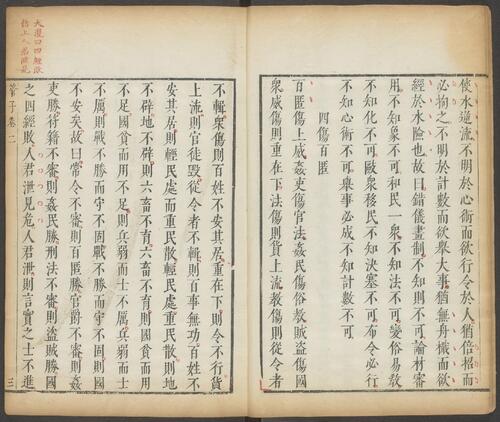 使水逆流不明於心術而欲行令於人猶倍招而
必拘之不明於計數而欲舉大事猶無舟楫而欲
經於水險也故曰錯儀畫制不知則不可論材審
用不知象不可和民一衆不知法不可變俗易教
不知化不可歐衆移民不知決塞不可布令必行
不知心術不可舉事必成不知計數不可
四傷百匿
百匿傷上威姦吏傷官法姦民傷俗教賊盜傷國
衆威傷則重在下法傷則貨上流教傷則從令者
不輯衆傷則百姓不安其居重在下則令不行貨
上流則官徒毀從令者不輯則百事無功百姓不
安其居則輕民處而重民散輕民處重民散則地
不辟地不辟則六畜不育六畜不育則國貧而用
不足國貧而用不足則兵弱而士不厲兵弱而士
不厲則戰不勝而守不固戰不勝而守不固則國
不安矣故曰常令不審則百匿勝官爵不審則姦
吏勝符籍不審則姦民勝刑法不審則盜賊勝國
之四經敗人君泄見危人君泄則言實之士不進
管子卷二
三